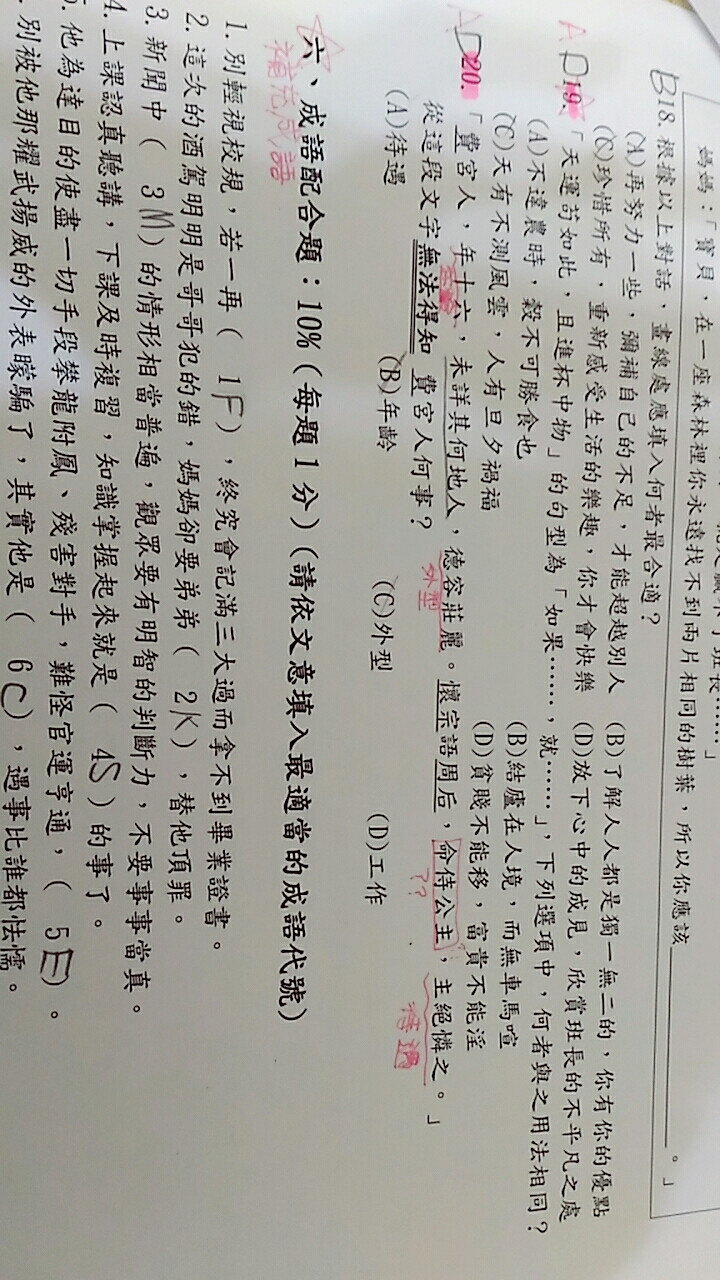 媽媽：「寶貝，在一座森林裡你永遠找不到兩片相同的樹葉，所以你應該＿＿＿＿＿＿。」
B18. 根據以上對話，畫線處應填入何者最合適？
(A)再努力一些，彌補自己的不足，才能超越別人 (B)了解人人都是獨一無二的，你有你的優點
(C)珍惜所有，重新感受生活的樂趣，你才會快樂 (D)放下心中的成見，欣賞班長的不平凡之處
A D19. 「天運苟如此，且進杯中物」的句型為「如果……，就……」，下列選項中，何者與之用法相同？
(A)不違農時，穀不可勝食也 (B)結廬在人境，而無車馬喧
(C)天有不測風雲，人有旦夕禍福 (D)貧賤不能移，富貴不能淫
A D20. 「費宮人，年十六，未詳其何地人，德容莊麗。懷宗語周后，命侍公主，主絕憐之。」
外型 ?? 待遇
從這段文字無法得知 費宮人何事？
(A)待遇 (B)年齡 (C)外型 (D)工作
六、成語配合題：10%（每題1分）（請依文意填入最適當的成語代號）
補充成語
1. 別輕視校規，若一再（ 1F ），終究會記滿三大過而拿不到畢業證書。
2. 這次的酒駕明明是哥哥犯的錯，媽媽卻要弟弟（ 2K ），替他頂罪。
3. 新聞中（ 3M ）的情形相當普遍，觀眾要有明智的判斷力，不要事事當真。
4. 上課認真聽講，下課及時複習，知識掌握起來就是（ 4S ）的事了。
他為達目的使盡一切手段攀龍附鳳、殘害對手，難怪官運亨通，（ 5E ）。
別被他那耀武揚威的外表矇騙了，其實他是（ 6C ），遇事比誰都怯懦。